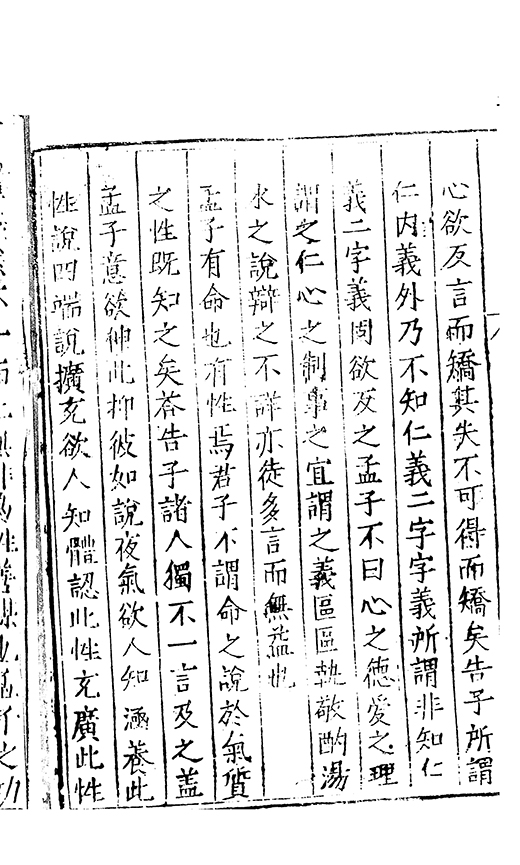 心欲反言而矯其失不可得而矯矣告子所謂
仁内義外乃不知仁義二字字義所謂非知仁
義二字義罔欲反之孟子不曰心之德愛之理
謂之仁心之制事之宜謂之義區區執敬酌湯
水之說辯之不詳亦徒多言而無益也
孟子有命也有性焉君子不謂命之說於氣質
之性既知之矣荅告子諸人獨不一言及之蓋
孟子意欲伸此抑彼如說夜氣欲人知涵養此
性說四端說擴充欲人知體認此性充廣此性